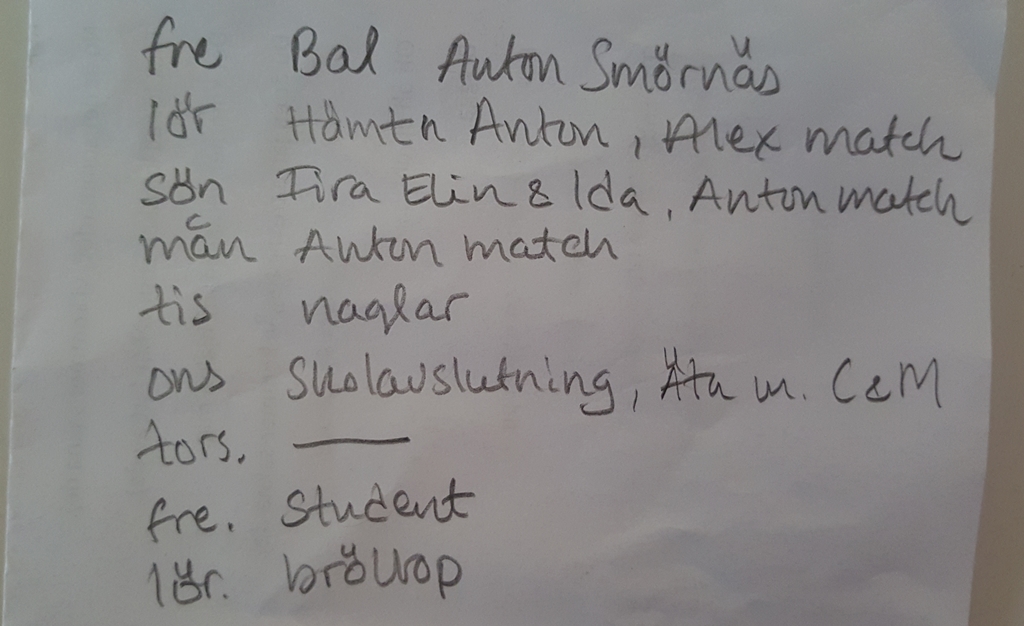 fre Bal Anton Smörnäs
lör Hämta Anton, Alex match
sön Fira Elin & Ida, Anton match
mån Anton match
tis naglar
ons Skolavslutning, Äta m. C&M
tors. —
fre. Student
lör. bröllop